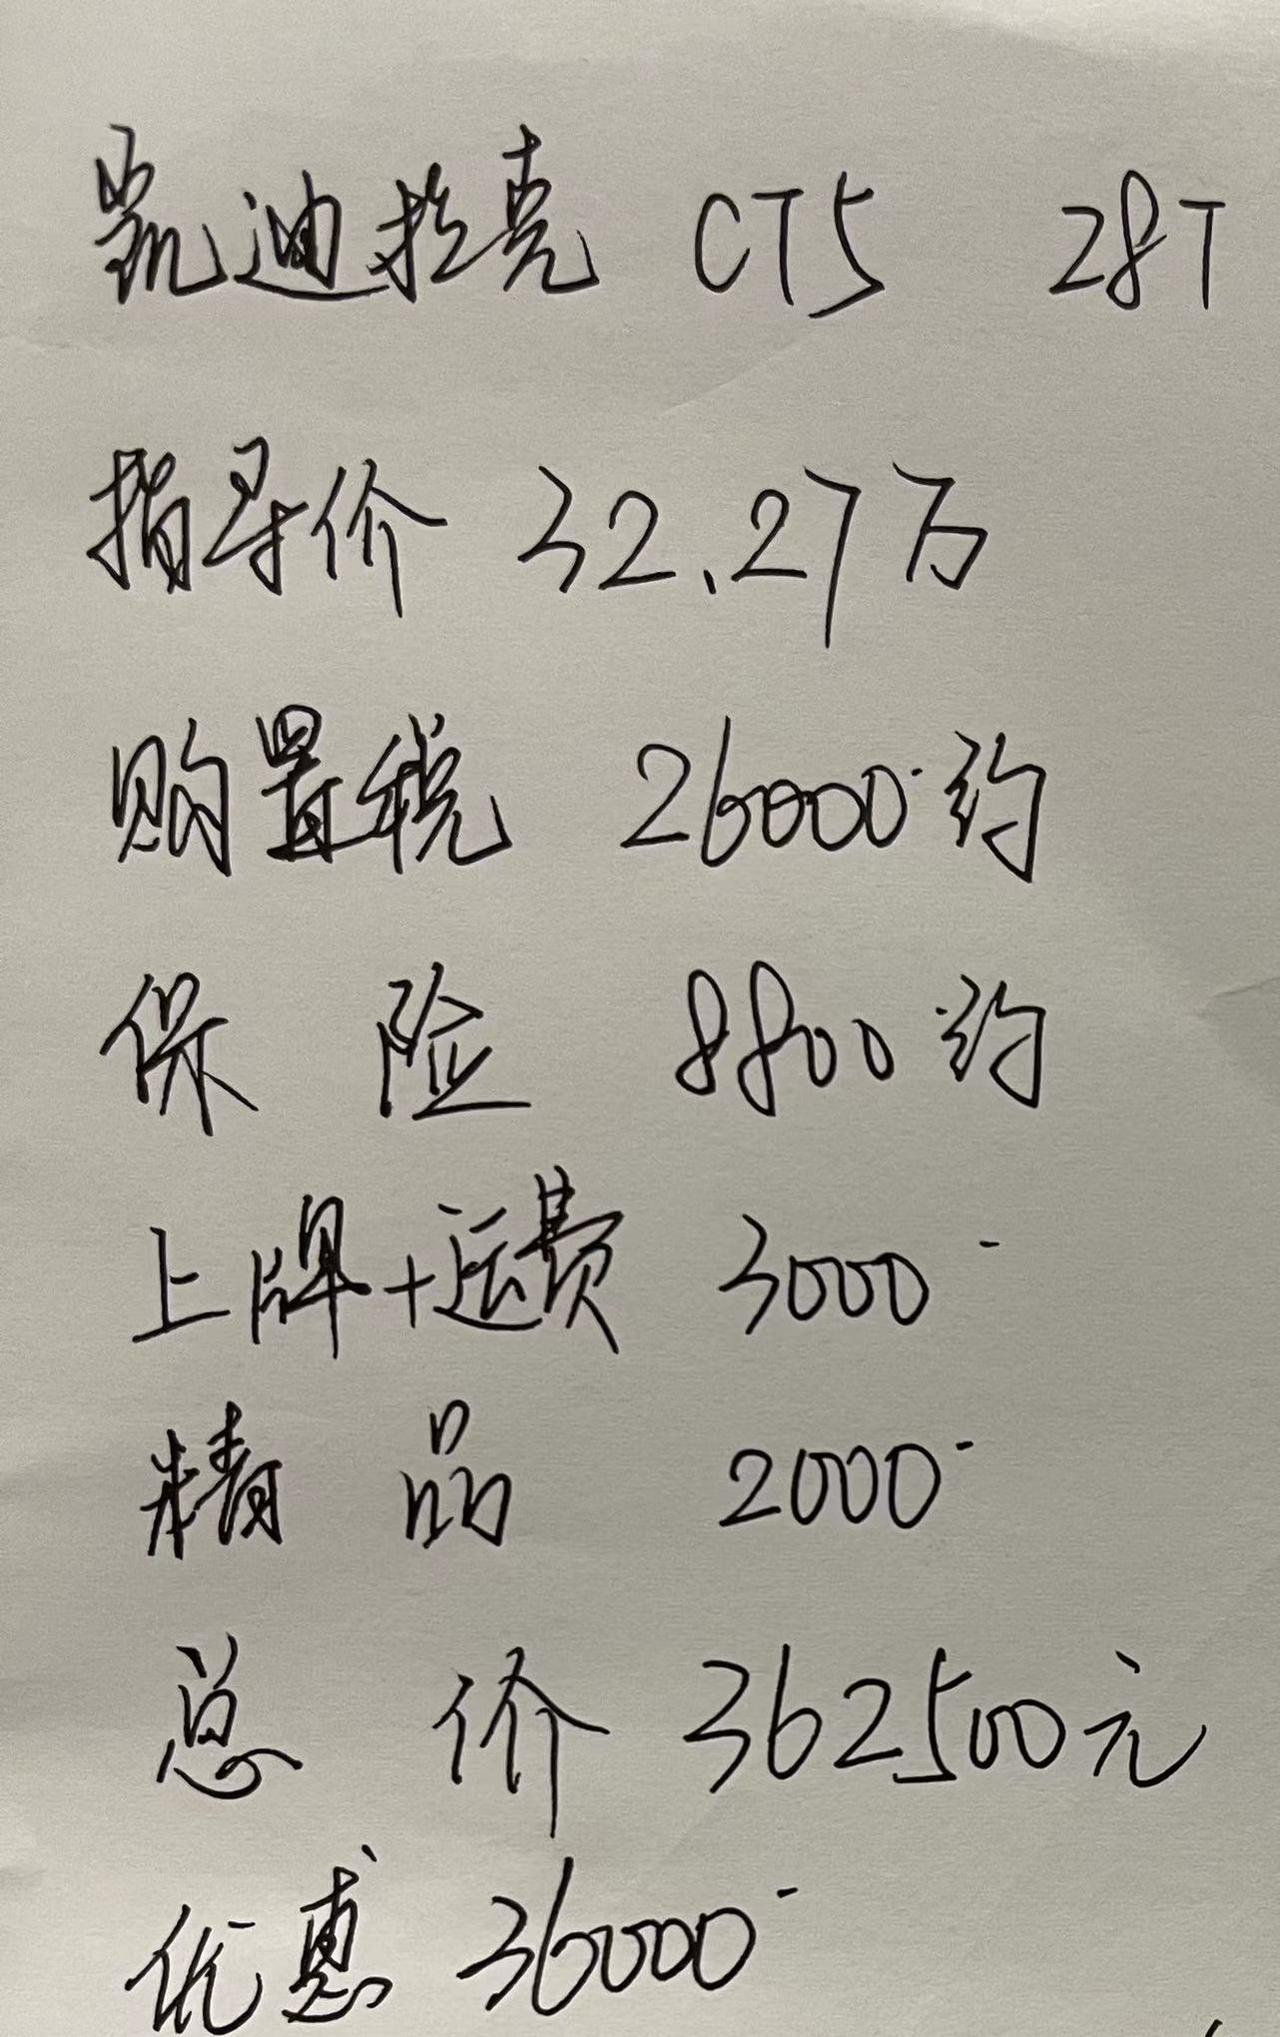 凯迪拉克 CT5 28T
指导价 32.27万
购置税 26000约
保险 8800约
上牌+运费 3000-
精品 2000-
总价 362500元
优惠 36000-